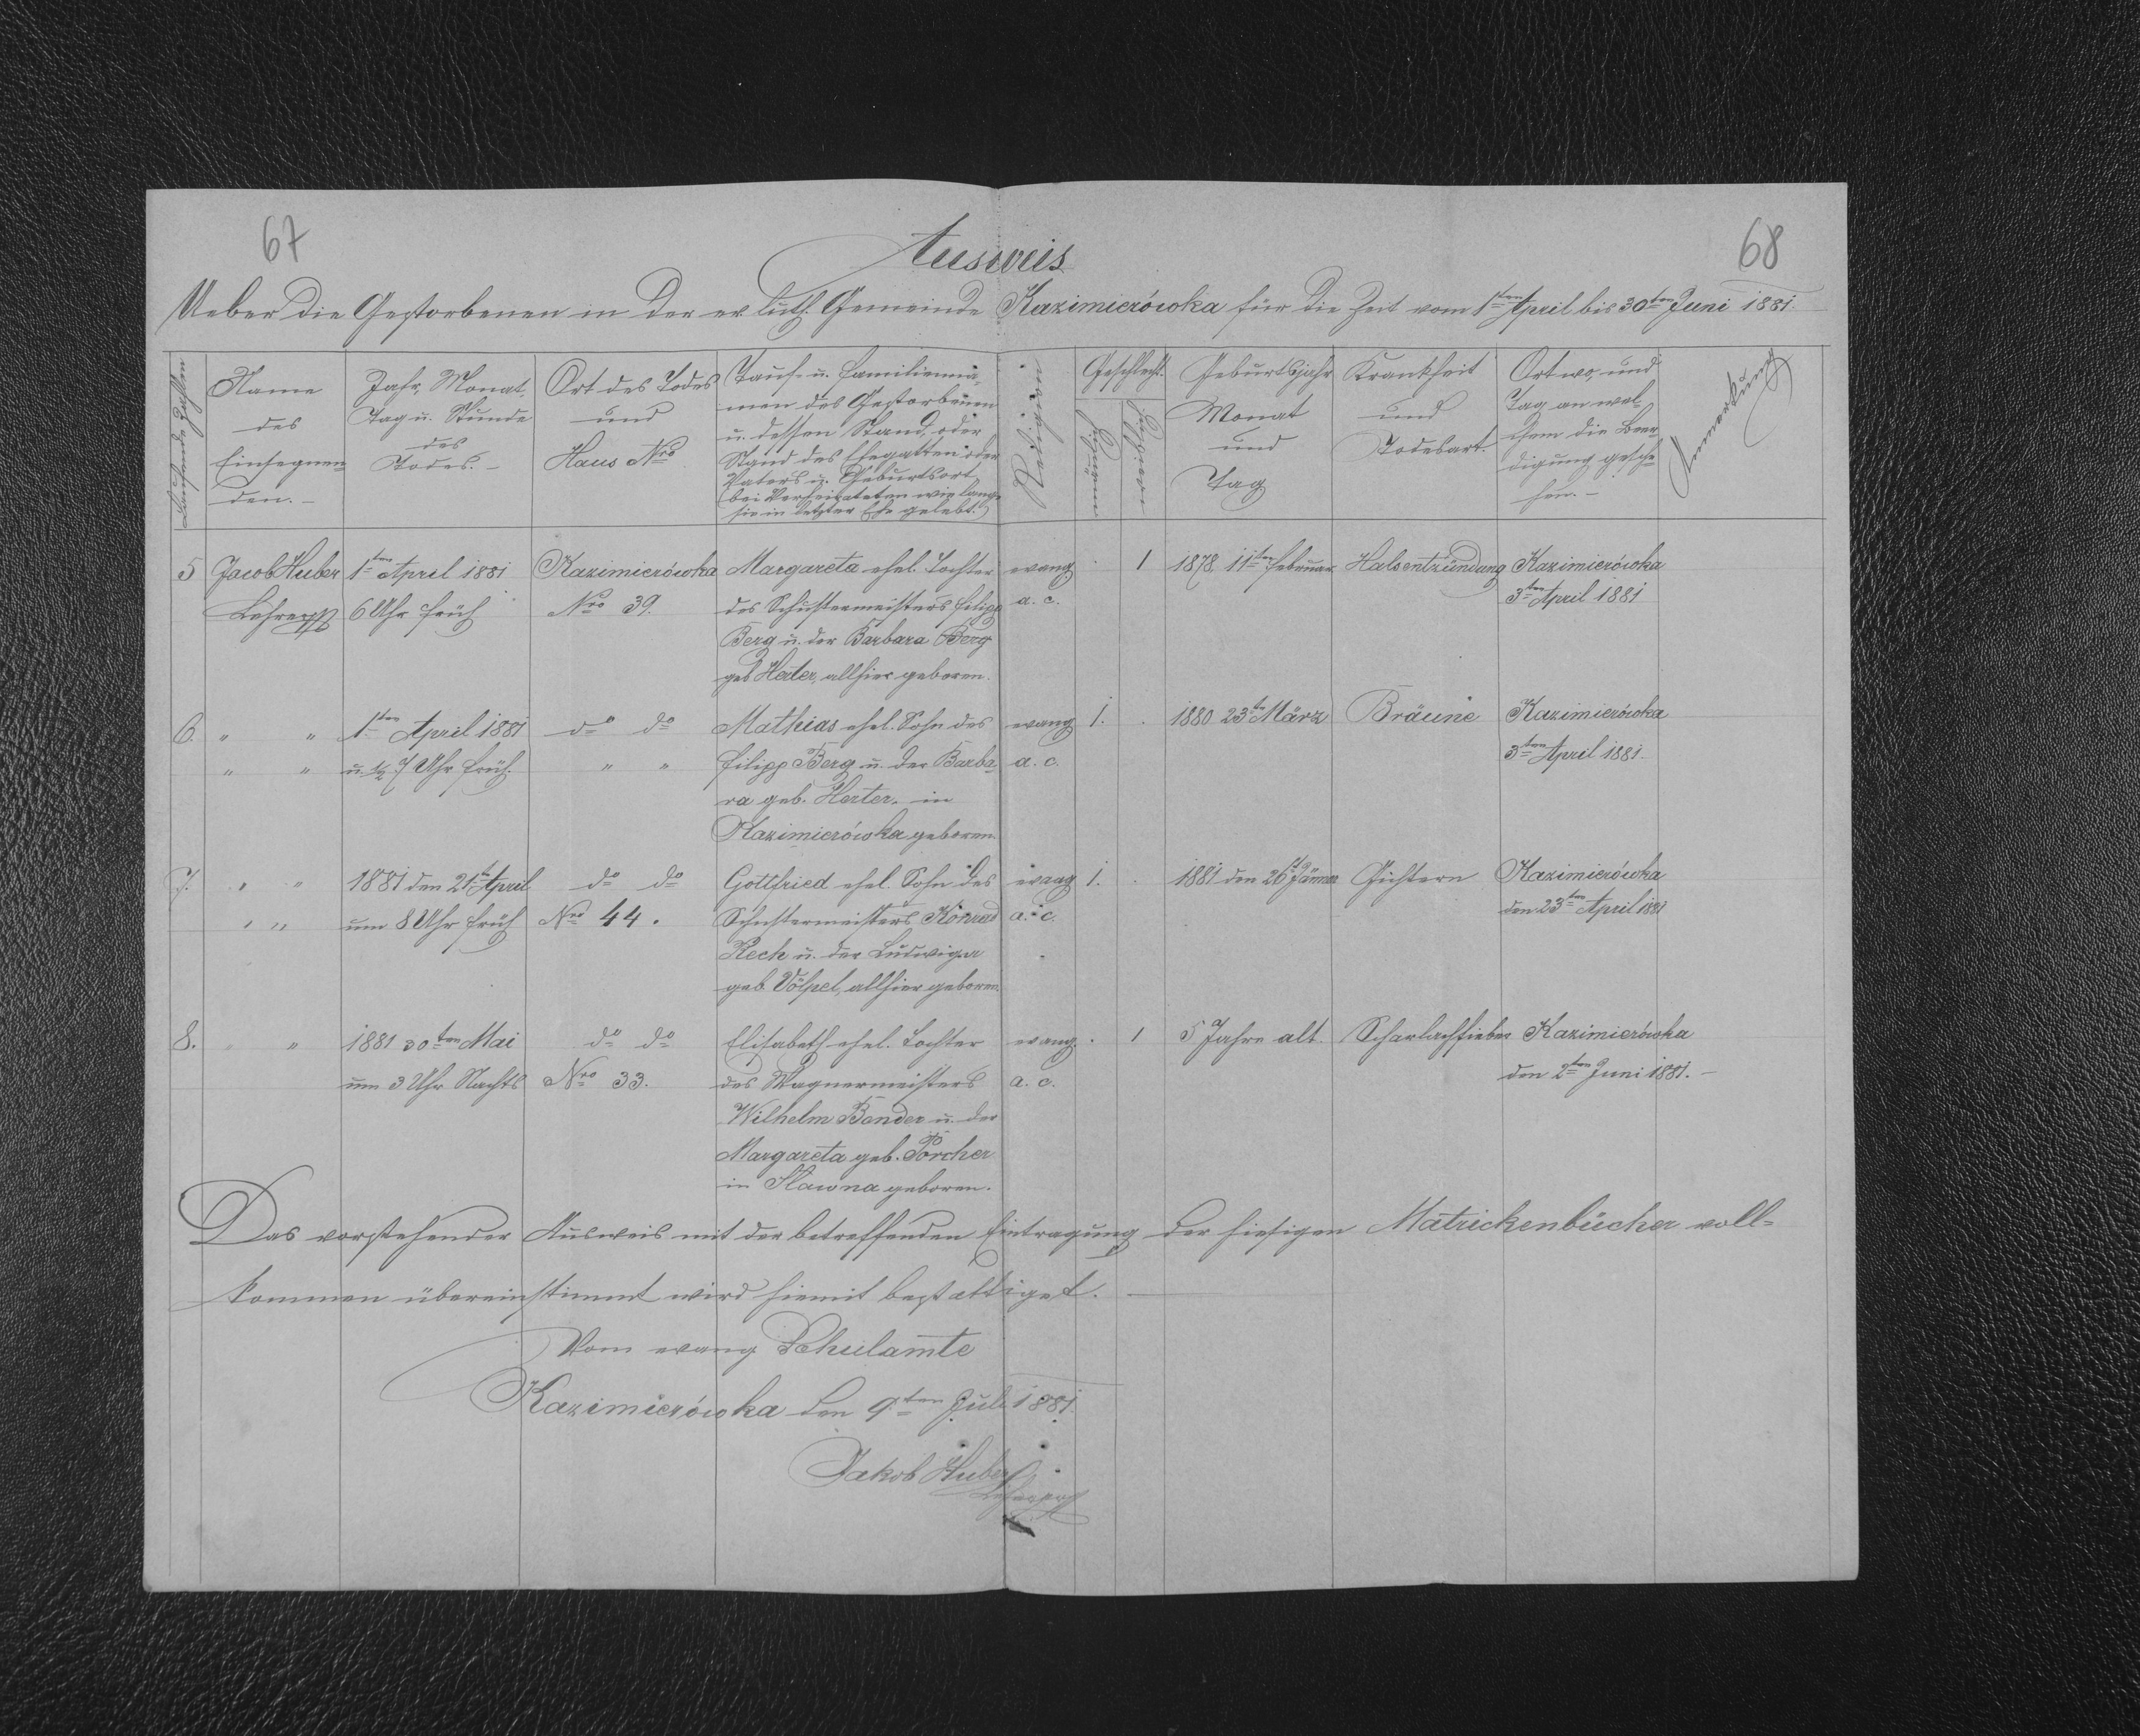 67
68
Ausweis
Ueber die Gestorbenen in der ev. luth. Gemeinde Kazimierówka für die Zeit vom 1ten April bis 30ten Juni 1881.
Laufende Zahlen
Name
des
Einsegnen-
den.-
Jahr, Monat,
Tag u. Stunde
des
Todes.-
Ort des Todes
und
Haus Nro
Tauf- u. Familienna-
men des Gestorbenen
u. dessen Stand, oder
Stand des Ehegatten oder
Vaters u. Geburtsort
bei Verheirateten wie lange
sie in letzter Ehe gelebt.
Religion
Geschlecht.
Geburtsjahr
Monat
und
Tag
Krankheit
und
Todesart.
Ort wo, und
Tag an wel-
chem die Beer-
digung gesche-
hen.-
Anmerkung
5 Jacob Huber 1ten April 1881 Kazimierówka Margareta ehel. Tochter evang. 1 1878 11ten Februar Halsentzündung Kazimierówka
Lehrer 6 Uhr früh Nro 39. des Schustermeisters Filipp a. c. 3ten April 1881
Berg u. der Barbara Berg
geb Herter, allhier geboren.
6. " " 1ten April 1881 do do Mathias ehel. Sohn des evang 1. . 1880 23te März Bräune Kazimierówka
" " u. ½ 7 Uhr früh. " " Filipp Berg u. der Barba- a. c. 3ten April 1881.
ra geb. Herter. in
Kazimierówka geboren.
7. " " 1881 den 21te April do do Gottfried ehel. Sohn des evang 1. . 1881 den 26t Jänner Gichtern Kazimierówka
" " um 8 Uhr früh Nro 44. Schustermeisters Konrad a. c. den 23ten April 1881
Rech u. der Ludwiga
geb. Völpel, allhier geboren.
8. " " 1881 30ten Mai do do Elisabeth ehel. Tochter evang. . 1 5 Jahre alt. Scharlachfieber Kazimierówka
um 3 Uhr Nachts Nro 33. des Wagnermeisters a. c. den 2ten Juni 1881.-
Wilhelm Bender u. der
Margareta geb. Porcher
in Slawna geboren.
Das vorstehender Ausweis mit der betreffenden Eintragung der hiesigen Matrickenbücher voll-
kommen übereinstimmt wird hiemit bestättiget.
Vom evang Schulamte
Kazimierówka den 9ten Juli 1881.
Jakob Huber
Lehrer